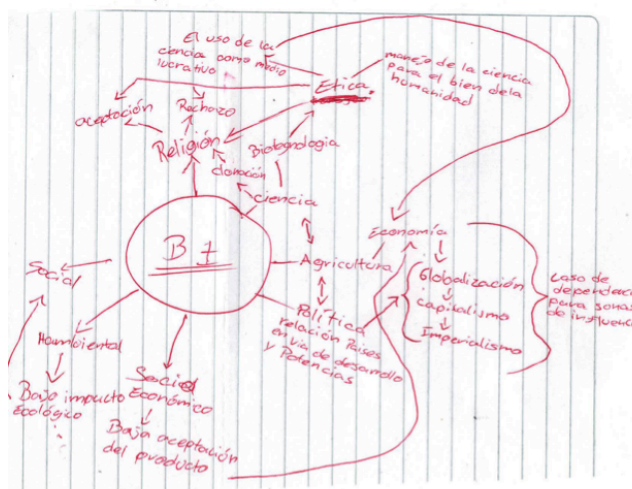 El uso de la
ciencia como medio
lucrativo
manejo de la ciencia
para el bien dela
humanidad
Etica.
aceptación
Rechazo
Religión
Biotegnologia
clonación
ciencia
B 1
Economía
Agricultura
Globalización
capitalismo
Imperialismo
caso de
dependencia
para sonas
de influenci
Política
relación Paises
en via de desarrollo
y Potencias
Social
Hambiental
Bajo impacto
Ecológico
Social
Económico
Baja aceptación
del producto